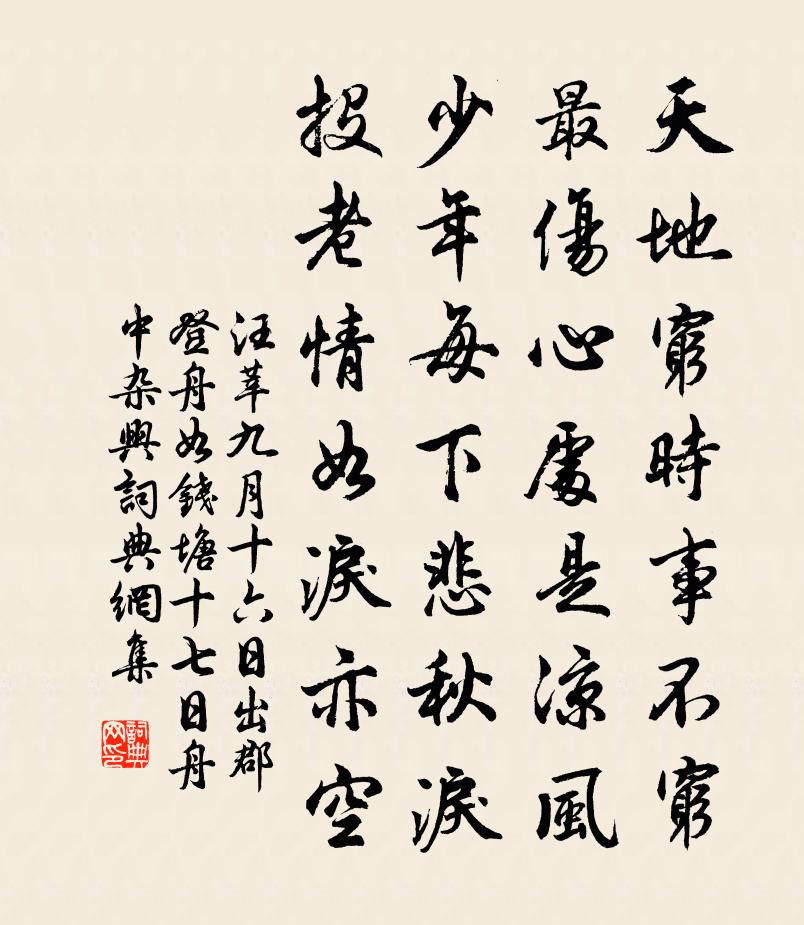 天地窮時事不窮
最傷心處是涼風
少年每下悲秋淚
投老情如淚亦空
汪莘九月十六日出郡
登舟如錢塘十七日舟
中杂興詞典網集
詞典
网印